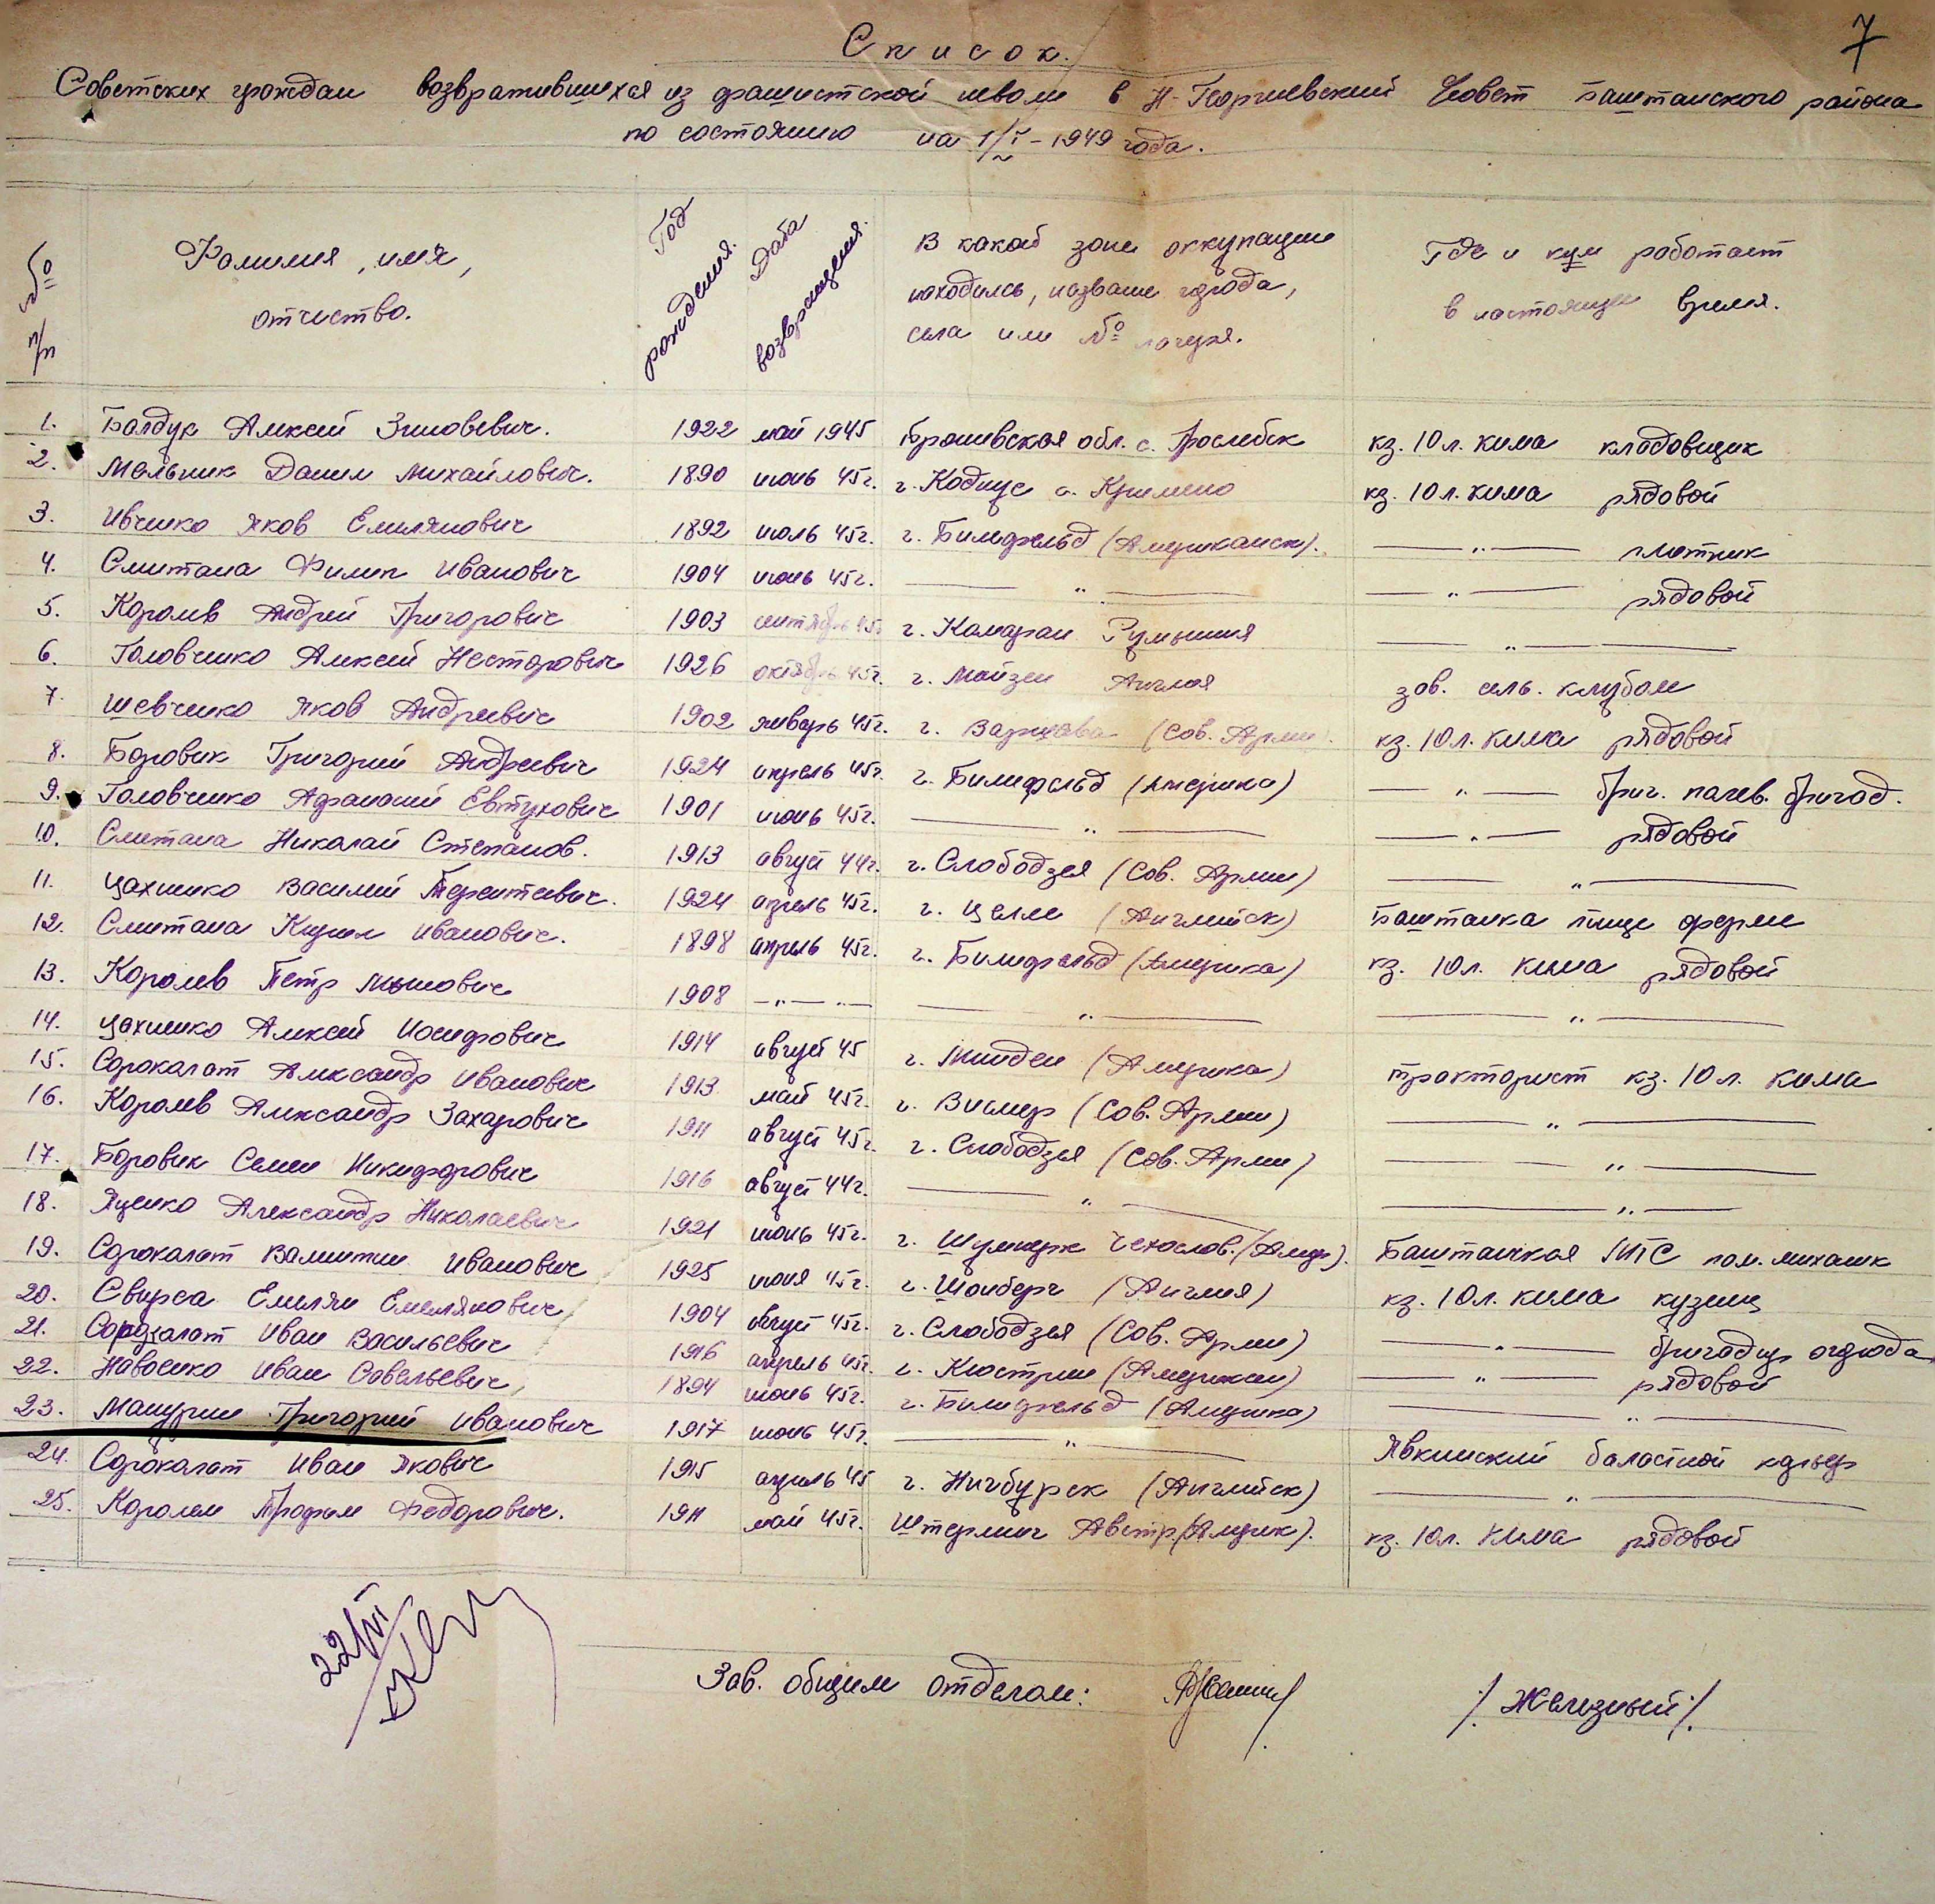 7
Список.
Советских граждан возвратившихся из фашистской неволи в Н-Георгиевский С/совет Баштанского района
по состоянию на 1/I - 1949 года.
№ п/п
Фамилия, имя, отчество.
Год рождения.
Дата возвращения.
В какой зоне оккупации находились, название города, села или № лагеря.
Где и кем работает в настоящее время.
1. Балдук Алексей Зиновевич. 1922 май 1945 обл. с. кз. 10 л. кима кладовщик
2. Мельник Данил Михайлович. 1890 июнь 45г. г. с. кз. 10 л. кима рядовой
3. Ивченко Яков Емелянович 1892 июль 45г. г. Билефельд (Американск). — " — плотник
4. Сметана Филип Иванович 1904 июнь 45г. — " — — " — рядовой
5. Королев Андрей Григорович 1903 сентябрь 45г г. Румыния — " —
6. Головченко Алексей Несторович 1926 октябрь 45г. г. Майзен Англия зав. сель. клубом
7. Шевченко Яков Андреевич 1902 январь 45г. г. Варшава (Сов. Арми. кз. 10 л. кима рядовой
8. Боровик Григорий Андреевич 1924 апрель 45г. г. Билефельд (Америка) — " — бриг. палев. бригад.
9. Головченко Афанасий Евтухович 1901 июнь 45г. — " — — " — рядовой
10. Сметана Николай Степанов. 1913 август 44г. г. Слободзея (Сов. Арми) — " —
11. Цахненко Василий Терентевич. 1924 апрель 45г. г. Целле (Английск) Баштанка птице ферме
12. Сметана Кирил Иванович. 1898 апрель 45г. г. Билефельд (Америка) кз. 10 л. кима рядовой
13. Королев Петр 1908 — " — " — — " — — " —
14. Цахненко Алексей Иосифович 1914 август 45 г. Минден (Америка) тракторист кз. 10 л. кима
15. Сорокалат Александр Иванович 1913 май 45г. г. Висмер (Сов. Арми) — " —
16. Королев Александр Захарович 1911 август 45г. г. Слободзея (Сов. Арми) — " —
17. Боровик Семен Никифорович 1916 август 44г. — " — — " —
18. Яценко Александр Николаевич 1921 июнь 45г. г. Шумперк Чехослов. (Амер). Баштанская МТС пом. механик
19. Сорокалат Валентин Иванович 1925 июня 45г. г. Шонберг (Англия) кз. 10 л. кима кузнец
20. Свирса Емелян Емелянович 1904 август 45г. г. Слободзея (Сов. Арми) — " — бригадир огорода
21. Сорокалат Иван Васильевич 1916 апрель 45г. г. Кюстрин (Американ) — " — рядовой
22. Навоенко Иван Савельевич 1894 июнь 45г. г. Билефельд (Америка) — " —
23. Манурин Григорий Иванович 1917 июнь 45г. — " — Явкинский баластной карьер
24. Сорокалат Иван Якович 1915 апрель 45 г. (Английск) — " —
25. Королев Трофим Федорович. 1911 май 45г. Австр. (Америк). кз. 10 л. кима рядовой
22/VI
Зав. общим отделом: /Железный/.